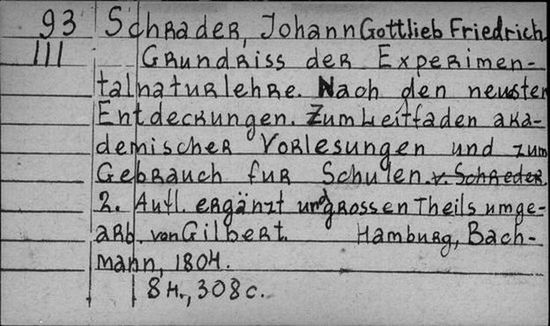 93 Schrader, Johann Gottlieb Friedrich
III Grundriss der Experimen-
talnaturlehre. Nach den neusten
Entdeckungen. Zum Leitfaden aka-
demischer Vorlesungen und zum
Gebrauch fur Schulen. v. Schreder.
2. Aufl. ergänzt und grossen Theils umge-
arb. von Gilbert. Hamburg, Bach-
mann, 1804.
8 н., 308 с.